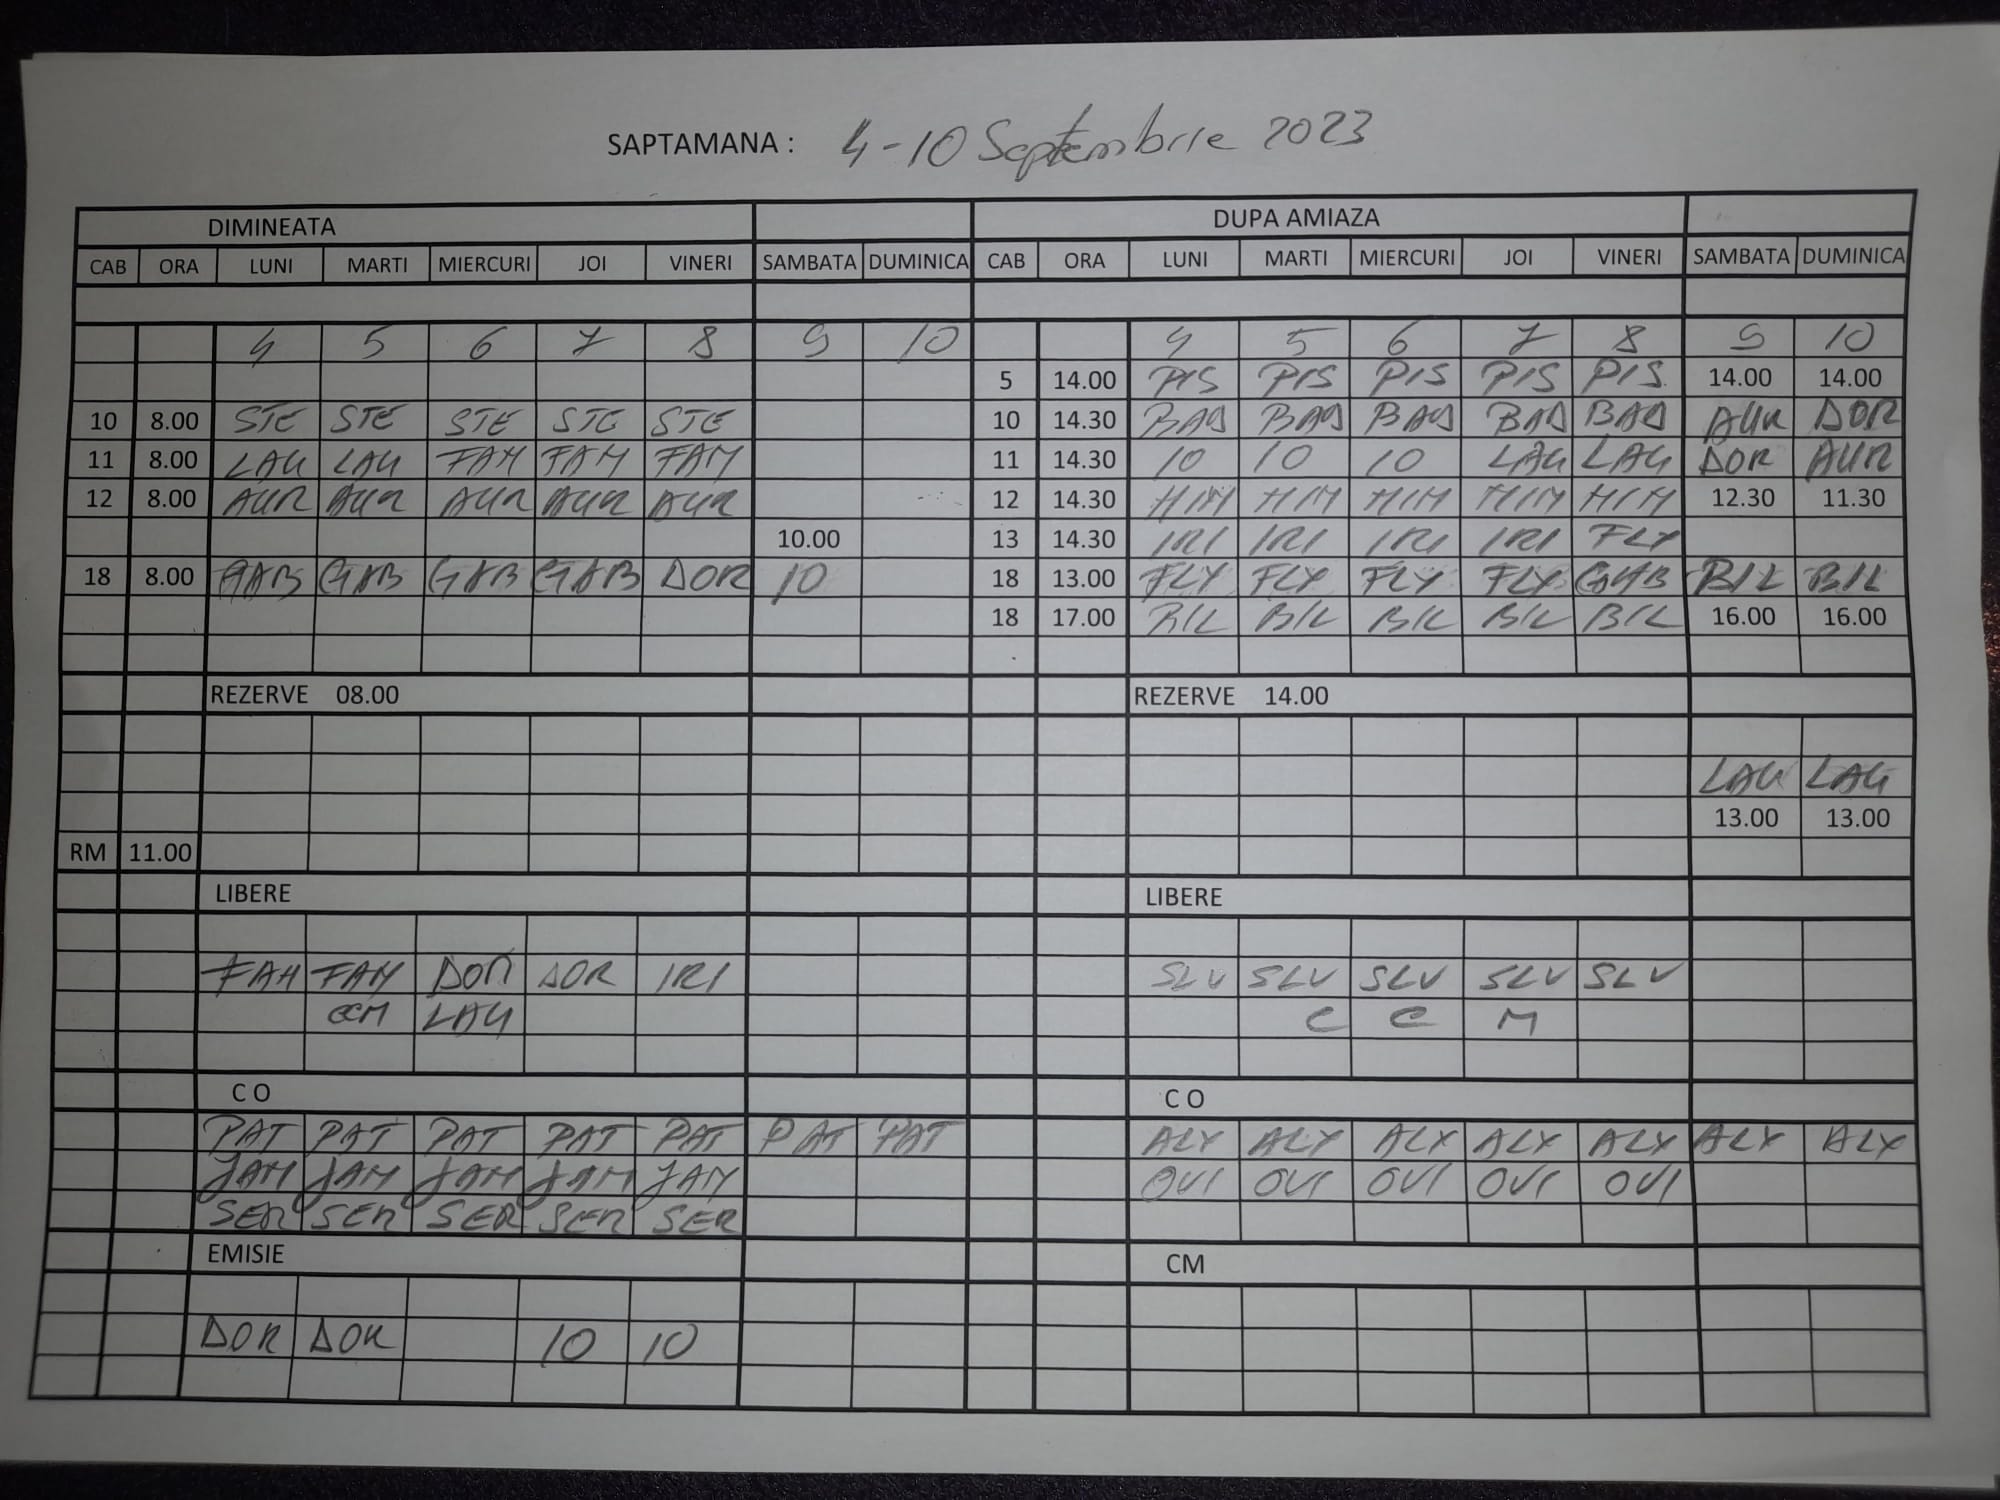 SAPTAMANA : 4-10 Septembrie 2023
DIMINEATA DUPA AMIAZA
CAB ORA LUNI MARTI MIERCURI JOI VINERI SAMBATA DUMINICA CAB ORA LUNI MARTI MIERCURI JOI VINERI SAMBATA DUMINICA
4 5 6 7 8 9 10 4 5 6 7 8 9 10
5 14.00 PIS PIS PIS PIS PIS 14.00 14.00
10 8.00 STE STE STE STE STE 10 14.30 BAD BAD BAD BAD BAD AUR DOR
11 8.00 LAU LAU FAM FAM FAM 11 14.30 10 10 10 LAU LAU DOR AUR
12 8.00 AUR AUR AUR AUR AUR 12 14.30 MIM MIM MIM MIM MIM 12.30 11.30
10.00 13 14.30 IRI IRI IRI IRI FLY
18 8.00 GAB GAB GAB GAB DOR 10 18 13.00 FLY FLY FLY FLY GAB BIL BIL
18 17.00 BIL BIL BIL BIL BIL 16.00 16.00
REZERVE 08.00 REZERVE 14.00
LAU LAU
13.00 13.00
RM 11.00
LIBERE LIBERE
FAM FAM DOR DOR IRI SLV SLV SLV SLV SLV
CCM LAU C C M
C O C O
PAT PAT PAT PAT PAT PAT PAT ALX ALX ALX ALX ALX ALX ALX
JAM JAM JAM JAM JAM OVI OVI OVI OVI OVI
SER SER SER SER SER
EMISIE CM
DOR DOR 10 10